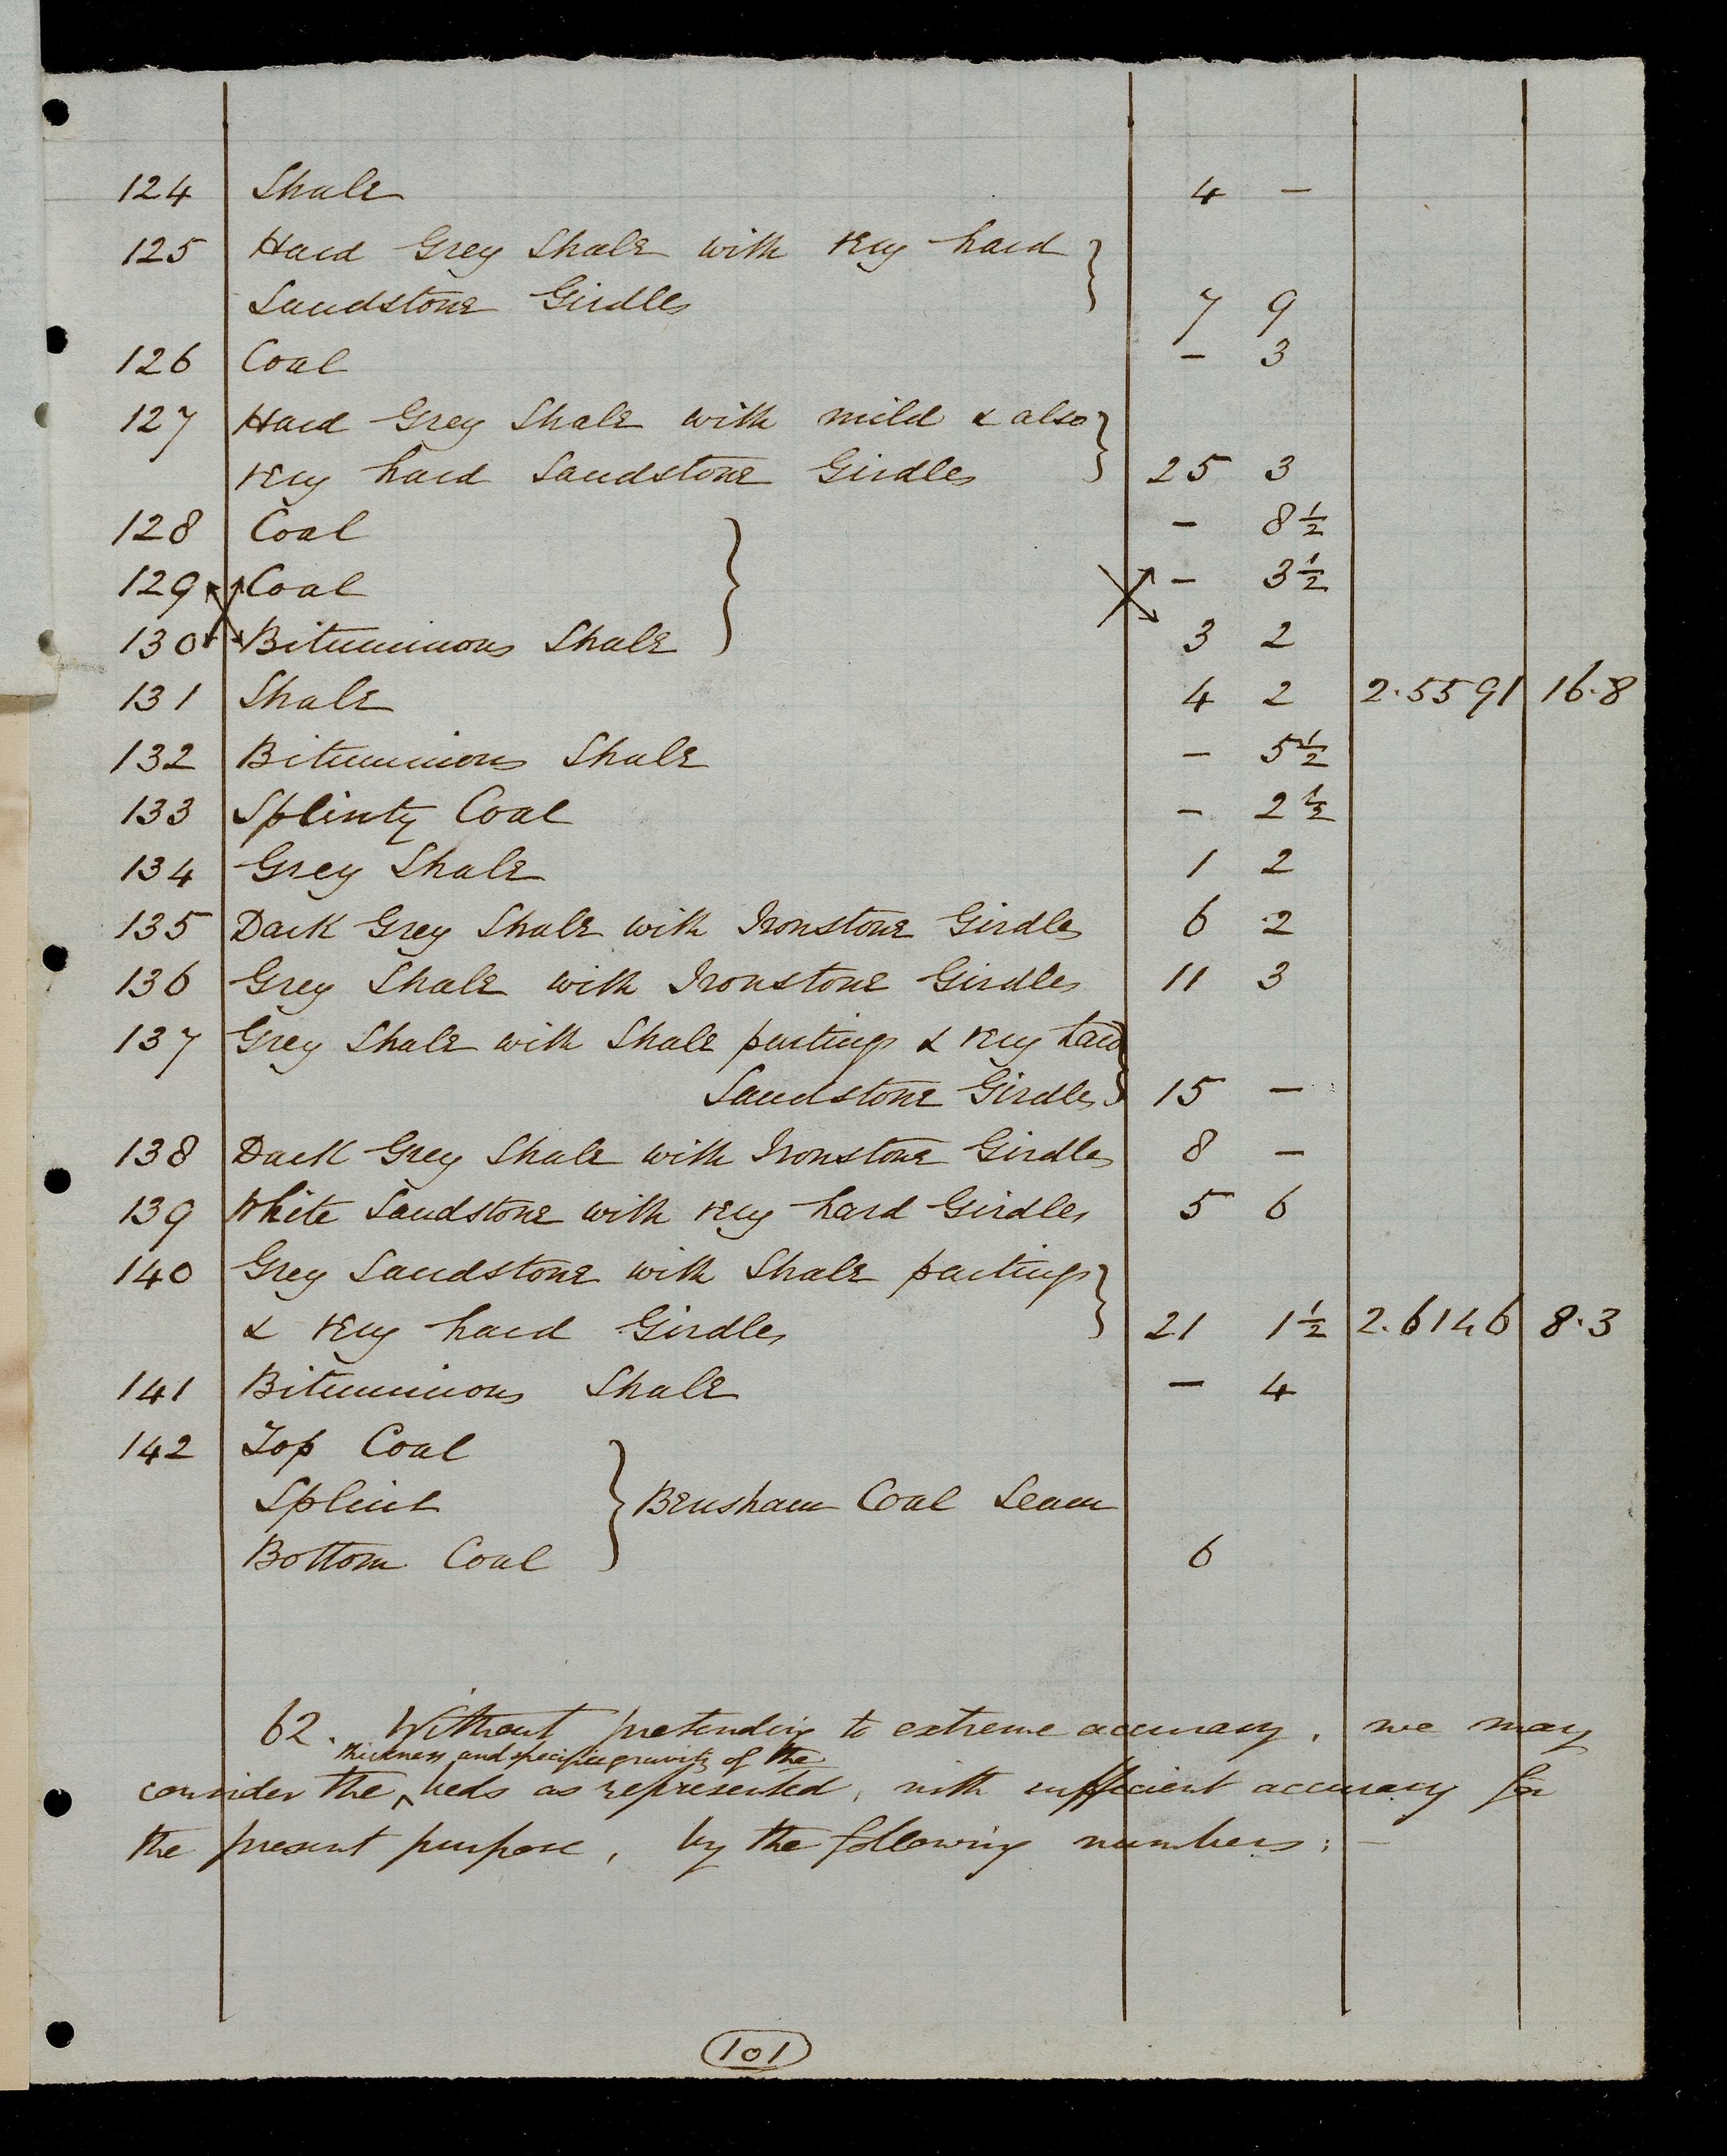 124 Shale 4 –
125 Hard Grey Shale with very hard
Sandstone Girdles 7 9
126 Coal – 3
127 Hard Grey Shale with mild & also
very hard Sandstone Girdles 25 3
128 Coal – 8½
129 Coal – 3½
130 Bituminous Shale 3 2
131 Shale 4 2 2.5591 16.8
132 Bituminous Shale – 5½
133 Splinty Coal – 2½
134 Grey Shale 1 2
135 Dark Grey Shale with Ironstone Girdles 6 2
136 Grey Shale with Ironstone Girdles 11 3
137 Grey Shale with Shale partings & very hard
Sandstone Girdles 15 –
138 Dark Grey Shale with Ironstone Girdles 8 –
139 White Sandstone with very hard Girdles 5 6
140 Grey Sandstone with Shale partings
& very hard Girdles 21 1½ 2.6146 8.3
141 Bituminous Shale – 4
142 Top Coal
Splint Bensham Coal Seam
Bottom Coal 6
62. Without pretending to extreme accuracy, we may
thickness and specific gravity of the
consider the beds as represented, with sufficient accuracy for
the present purpose, by the following numbers: –
101